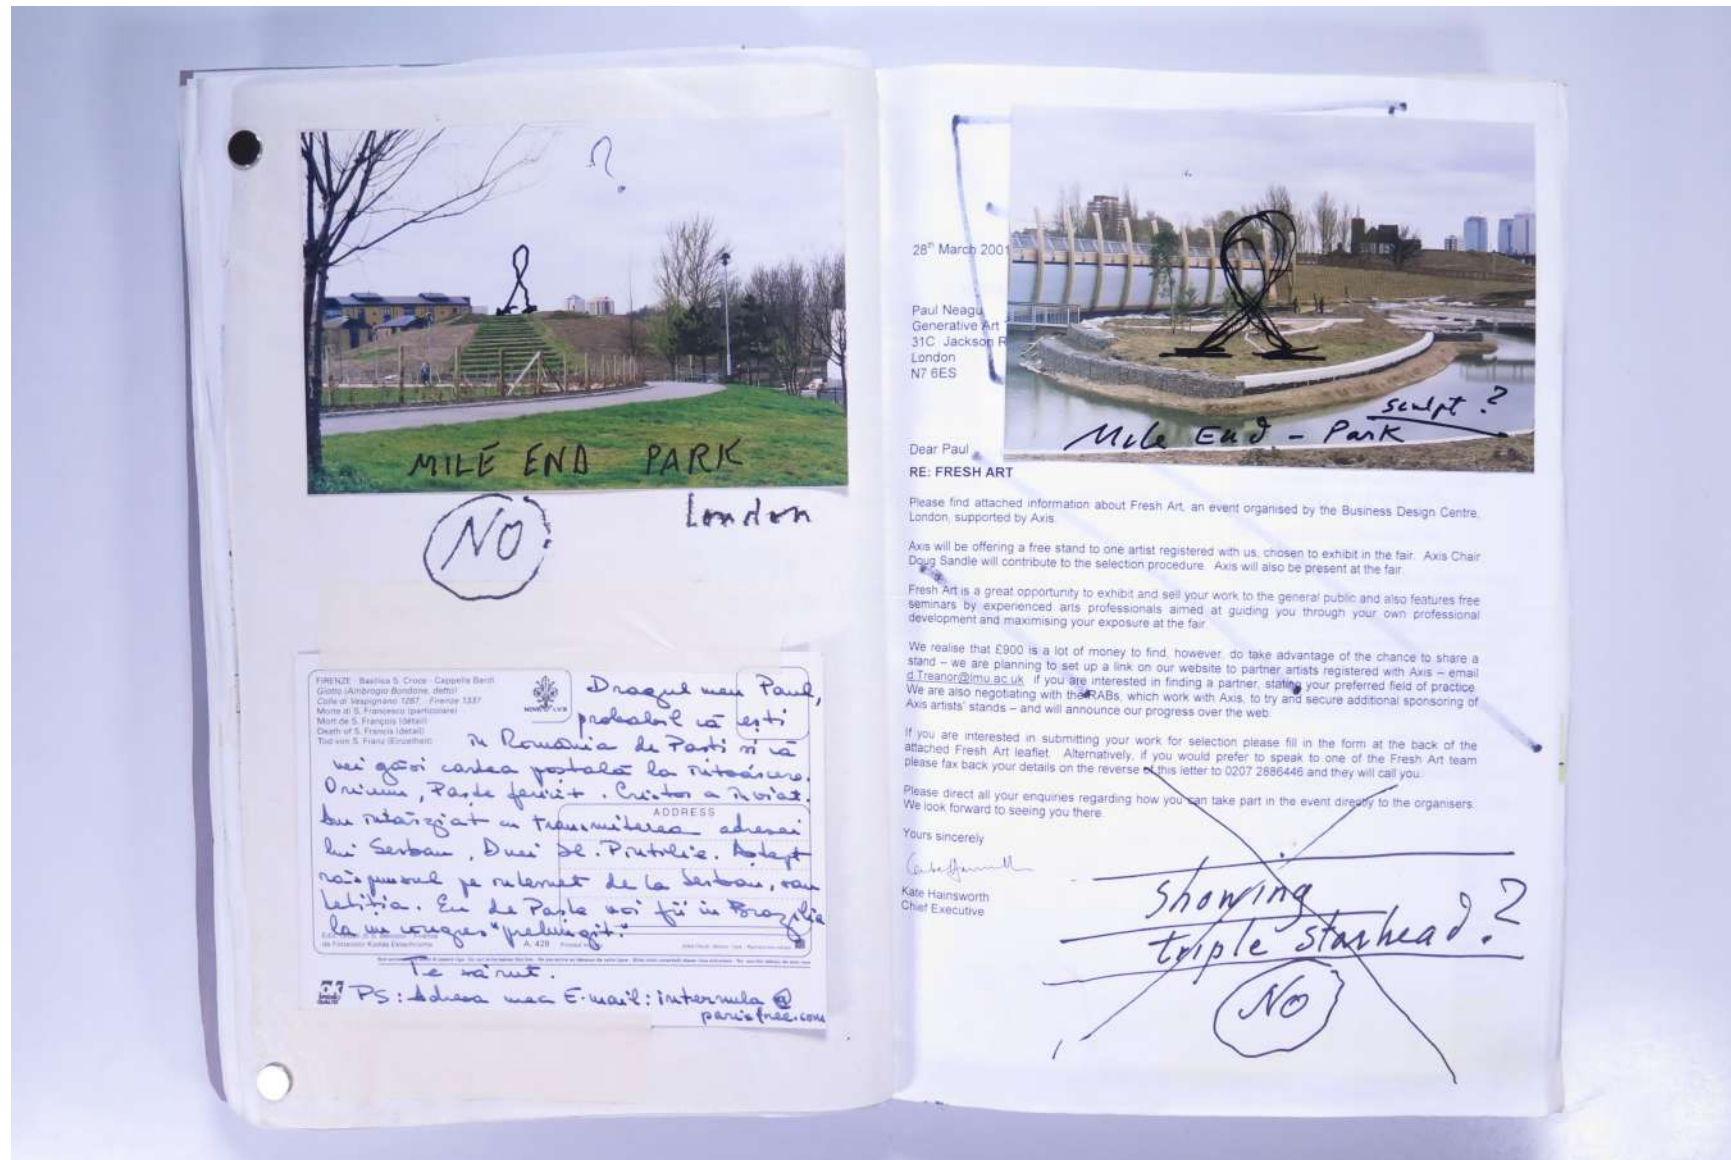 ?
MILE END PARK
London
NO
FIRENZE - Basilica S. Croce - Cappella Bardi
Giotto (Ambrogio Bondone, detto)
Colle di Vespignano 1267, Firenze 1337
Morte di S. Francesco (particolare)
Mort de S. François (détail)
Death of S. Francis (detail)
Tod von S. Franz (Einzelheit)
NOVA LUX
ADDRESS
Dragul meu Paul,
probabil că ești
în România de Paști și că
vei găsi cartea poștală la întoarcere.
Oricum, Paște fericit. Cristos a înviat.
Am întârziat cu transmiterea adresei
lui Serban, Duei Sf. Aștept
răspunsul pe internet de la Serban, sau
Letiția. Eu de Paște voi fi în Brazilia
la un congres "prelungit."
da Fotocolor Kodak Ektachrome
A. 428
Te sărut.
PS: Adresa mea E-mail: internula @
parisfree.com
sculpt ?
Mile End - Park
28th March 2001
Paul Neagu
Generative Art
31C Jackson R
London
N7 6ES
Dear Paul
RE: FRESH ART
Please find attached information about Fresh Art, an event organised by the Business Design Centre,
London, supported by Axis.
Axis will be offering a free stand to one artist registered with us, chosen to exhibit in the fair. Axis Chair
Doug Sandle will contribute to the selection procedure. Axis will also be present at the fair.
Fresh Art is a great opportunity to exhibit and sell your work to the general public and also features free
seminars by experienced arts professionals aimed at guiding you through your own professional
development and maximising your exposure at the fair.
We realise that £900 is a lot of money to find, however, do take advantage of the chance to share a
stand – we are planning to set up a link on our website to partner artists registered with Axis – email
d.Treanor@lmu.ac.uk if you are interested in finding a partner, stating your preferred field of practice.
We are also negotiating with the RABs, which work with Axis, to try and secure additional sponsoring of
Axis artists' stands – and will announce our progress over the web.
If you are interested in submitting your work for selection please fill in the form at the back of the
attached Fresh Art leaflet. Alternatively, if you would prefer to speak to one of the Fresh Art team
please fax back your details on the reverse of this letter to 0207 2886446 and they will call you.
Please direct all your enquiries regarding how you can take part in the event directly to the organisers.
We look forward to seeing you there.
Yours sincerely
Kate Hainsworth
Chief Executive
Showing
triple starhead ?
NO